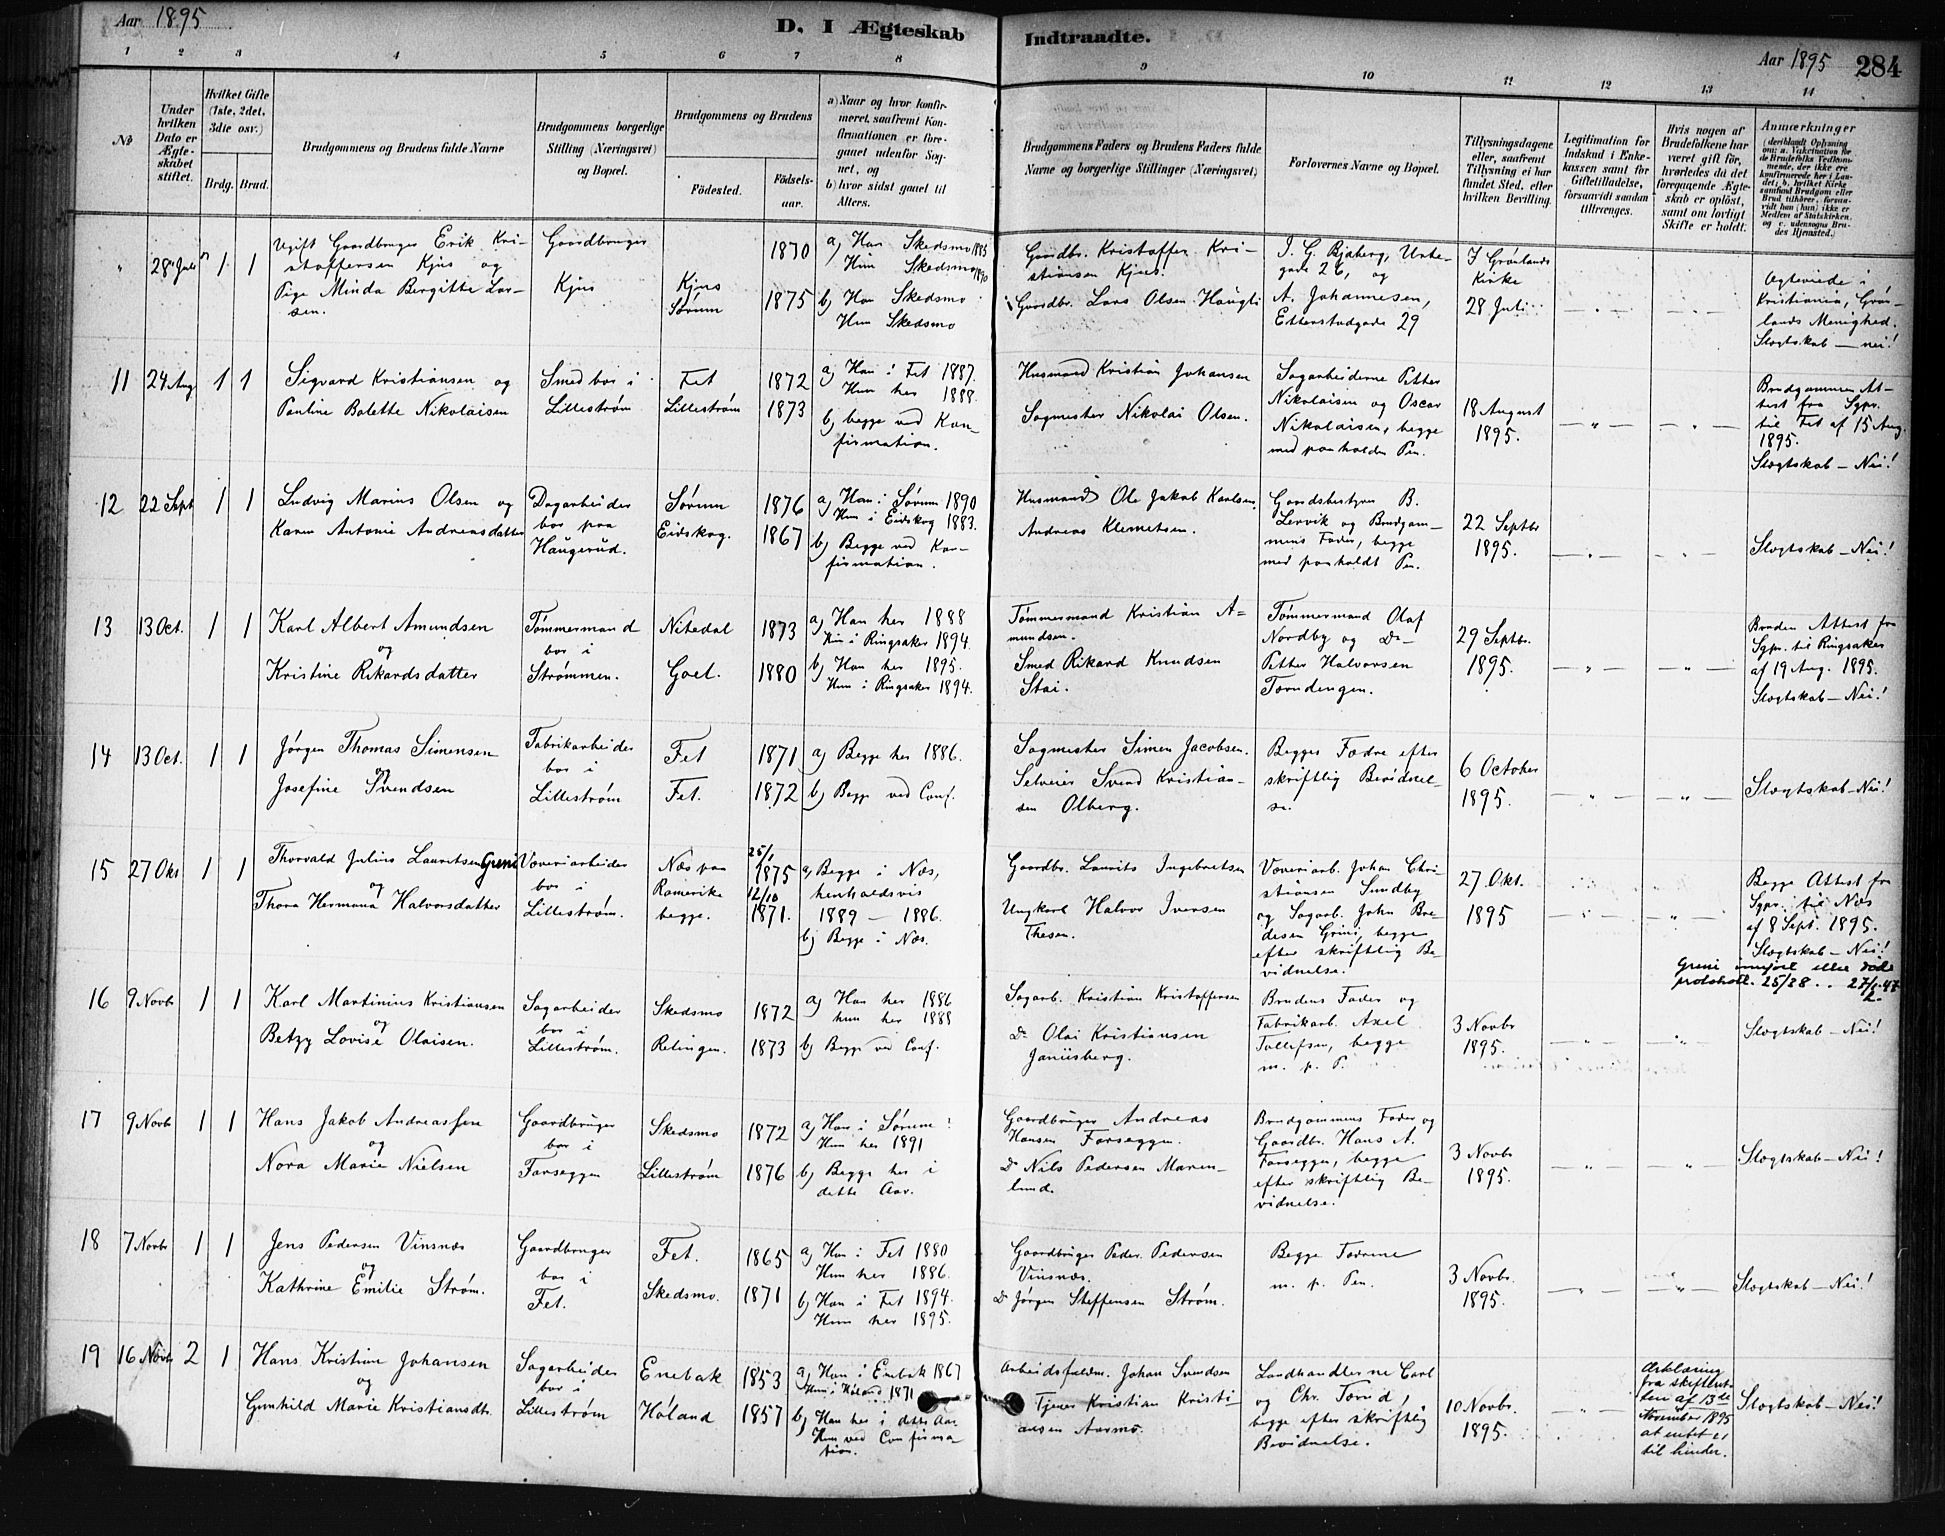 Aar 1895
D. I Ægteskab
Indtraadte.
Aar 1895
284
1 2 3 4 5 6 7 8 9 10 11 12 13 14
No
Under hvilken Dato er Ægteskabet stiftet.
Hvilket Gifte (1ste, 2det, 3die osv.)
Brdg. Brud.
Brudgommens og Brudens fulde Navne
Brudgommens borgerlige Stilling (Næringsvei) og Bopæl.
Brudgommens og Brudens
Fødested.
Fødselsaar.
a) Naar og hvor konfirmeret, saafremt Konfirmationen er foregaaet udenfor Sognet, og
b) hvor sidst gaaet til Alters.
Brudgommens Faders og Brudens Faders fulde Navne og borgerlige Stillinger (Næringsvei)
Forlovernes Navne og Bopæl.
Tillysningsdagene eller, saafremt Tillysning ei har fundet Sted, efter hvilken Bevilling.
Legitimation for Indskud i Enkekassen samt for Giftetilladelse, forsaavidt saadan tiltrænges.
Hvis nogen af Brudefolkene har været gift før, hvorledes da det foregaaende Ægteskab er opløst, samt om lovligt Skifte er holdt.
Anmærkninger
(deriblandt Oplysning om: a. Vaktination for de Brudefolks Vedkommende, der ikke ere konfirmerede her i Landet; b. hvilket Kirkesamfund Brudgom eller Brud tilhører, forsaavidt han (hun) ikke er Medlem af Statskirken, og c. udensogns Brudes Hjemsted.)
" 28 Juli 1 1
Ugift Gaardbruger Erik Kristoffersen Kjus og
Pige Minda Bergitte Larsen.
Gaardbruger
Kjus
Kjus
Sørum
1870
1875
a) Han Skedsmo 1885
Hun Skedsmo 1890
b) Han Skedsmo
Hun Skedsmo
Gaardbr. Kristoffer Kristiansen Kjus.
Gaardbr. Lars Olsen Haugli
I. G. Bjaberg, gade 26, og
A. Johannesen,
Etterstadgade 29
I Grønlands Kirke
28 Juli
Ægteviede i Kristiania, Grønlands Menighed.
Slægtskab — nei!
11 24 Aug 1 1
Sigvard Kristiansen og
Pauline Bolette Nikolaisen
Smed bor i
Lillestrøm
Fet
Lillestrøm
1872
1873
a) Han i Fet 1887.
Hun her 1888.
b) begge ved Konfirmation.
Husmand Kristian Johansen
Sagmester Nikolai Olsen.
Sagarbeiderne Petter
Nikolaisen og Oscar
Nikolaisen, begge
med paaholden Pen.
18 August
1895.
Brudgommen Attest fra Sgpr.
til Fet af 15 Aug.
1895.
Slægtskab — Nei!
12 22 Sept 1 1
Ludvig Marius Olsen og
Karen Antonie Andreasdatter
Dagarbeider
bor paa
Haugerud.
Sørum
Eidskog.
1876
1867
a) Han i Sørum 1890
Hun i Eidskog 1883.
b) Begge ved Konfirmation.
Husmand Ole Jakob Karlsen
Andreas Klemetsen.
Gaardsbestyrer B.
Lervik og Brudgommens Fader, begge
med paaholdt Pen.
22 Septbr
1895.
Slægtskab — Nei!
13 13 Oct. 1 1
Karl Albert Amundsen
og
Kristine Rikardsdatter
Tømmermand
bor i
Strømmen.
Nitedal
Goel.
1873
1880
a) Han her 1888
Hun i Ringsaker 1894.
b) Han her 1895.
Hun i Ringsaker 1894.
Tømmermand Kristian Amundsen.
Smed Rikard Knudsen
Stai.
Tømmermand Olaf
Nordby og Do
Petter Halvorsen
29 Septbr.
1895.
Bruden Attest fra
Sgpr. til Ringsaker
af 19 Aug. 1895.
Slægtskab — Nei!
14 13 Oct. 1 1
Jørgen Thomas Simensen
og
Josefine Svendsen
Fabrikarbeider
bor i
Lillestrøm
Fet
Fet.
1871
1872
a) Begge her 1886.
b) Begge ved Conf.
Sagmester Simen Jacobsen.
Selveier Svend Kristiansen Olberg.
Begges Fædre efter
skriftlig Bevidnelse.
6 October
1895.
Slægtskab — Nei!
15 27 Okt 1 1
Thorvald Julius Lauritsen Greni
og
Thora Hermana Halvorsdatter
Væveriarbeider
bor i
Lillestrøm.
Næs paa
Romerike
begge.
25/1
1875
12/10
1871.
a) Begge i Næs,
henholdsvis
1889 — 1886.
b) Begge i Næs.
Gaardbr. Laurits Ingebretsen
Ungkarl Halvor Iversen
Thesen.
Væveriarb. Johan Christiansen Sundby
og Sagarb. John Bredesen Grini, begge
efter skriftlig Bevidnelse.
27 Okt.
1895
Begge Attest fra
Sgpr. til Næs
af 8 Sept. 1895.
Slægtskab — Nei!
Greni innført etter
protokoll. 25/28
16 9 Novbr 1 1
Karl Martinius Kristiansen
og
Betzy Lovise Olaisen.
Sagarbeider
bor i
Lillestrøm.
Skedsmo
Relingen.
1872
1873
a) Han her 1886
hun her 1888
b) Begge ved Conf.
Sagarb. Kristian Kristoffersen
Do Olai Kristiansen
Janiisberg.
Brudens Fader og
Fabrikarb. Axel
Tollefsen, begge
m. p. P.
3 Novbr
1895.
Slægtskab — Nei!
17 9 Novbr 1 1
Hans Jakob Andreassen
og
Nora Marie Nielsen
Gaardbruger
bor i
Farseggen
Skedsmo
Lillestrøm
1872
1876
a) Han i Sørum!
Hun her 1891
b) Begge her i
dette Aar.
Gaardbruger Andreas
Hansen Farseggen.
Do Nils Pedersen Marenlund.
Brudgommens Fader og
Gaardbr. Hans A.
Farseggen, begge
efter skriftlig Bevidnelse.
3 Novbr
1895.
Slægtskab — Nei!
18 7 Novbr 1 1
Jens Pedersen Vinsnæs
og
Kathrine Emilie Strøm.
Gaardbruger
bor i
Fet.
Fet.
Skedsmo.
1865
1871
a) Han i Fet 1880
Hun her 1886.
b) Han i Fet 1894.
Hun her 1895.
Gaardbruger Peder Pedersen
Vinsnæs.
Do Jørgen Steffensen Strøm.
Begge Fædrene
m. p. Pen.
3 Novbr.
1895.
Slægtskab — Nei!
19 16 Novbr 2 1
Hans Kristian Johansen
og
Gunhild Marie Kristiansdtr.
Sagarbeider
bor i
Lillestrøm
Enebak
Høland
1853
1857
a) Han i Enebak 1867
Hun i Høland 1871
b) Han her i dette Aar
Hun ved Confirmation.
Arbeidsformm. Johan Svendsen
Tjener Kristian Kristiansen Aarmo.
Landhandlerne Carl
og Chr. Tærud,
begge efter skriftlig
Bevidnelse.
10 Novbr.
1895.
Erklæring
fra skifteretten af 13de
November 1895
at intet er
til hinder.
Slægtskab — Nei!